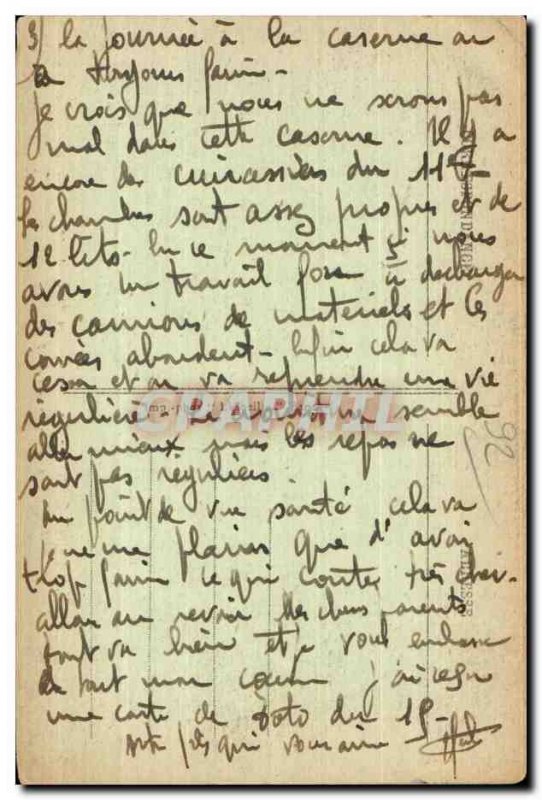 3/ la journée à la caserne on
a toujours faim -
je crois que nous ne serons pas
mal dans cette caserne. Il y a
encore des cuirassiers du 11e -
les chambres sont assez propres et de
12 lits - En ce moment ci nous
avons un travail fou à décharger
des camions de matériels et les
corvées abondent - Enfin cela va
cesser et on va reprendre une vie
régulière. semble
aller mieux mais les repas ne
sont pas réguliers.
Au point de vue santé cela va
plains que d'avoir
trop faim ce qui coute très cher -
allons au revoir mes chers parents
tout va bien et je vous embrasse
de tout mon coeur j'ai reçu
une carte de Toto du 15 -
votre fils qui vous aime
CRAPHIL
92